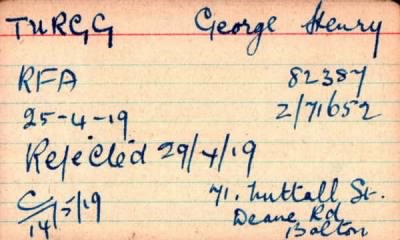 TURGG George Henry
RFA 82387
25-4-19 2/71652
Rejected 29/4/19
C/14/5/19 71. Nuttall St.
Deane Rd
Bolton